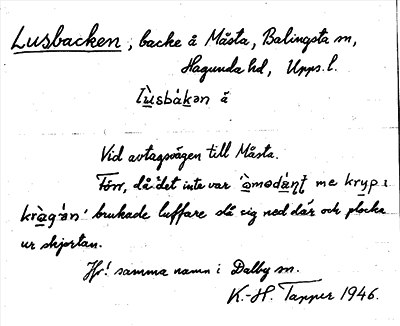 Lusbacken, backe å Måsta, Balingsta sn,
Hagunda hd, Upps. l.
lùsbákən å
Vid avtagsvägen till Måsta.
Förr, då det inte var 'òmodánt me kryp i
kràgán' brukade luffare slå sig ned där och plocka
ur skjortan.
Jfr! samma namn i Dalby sn.
K.-H. Tapper 1946.